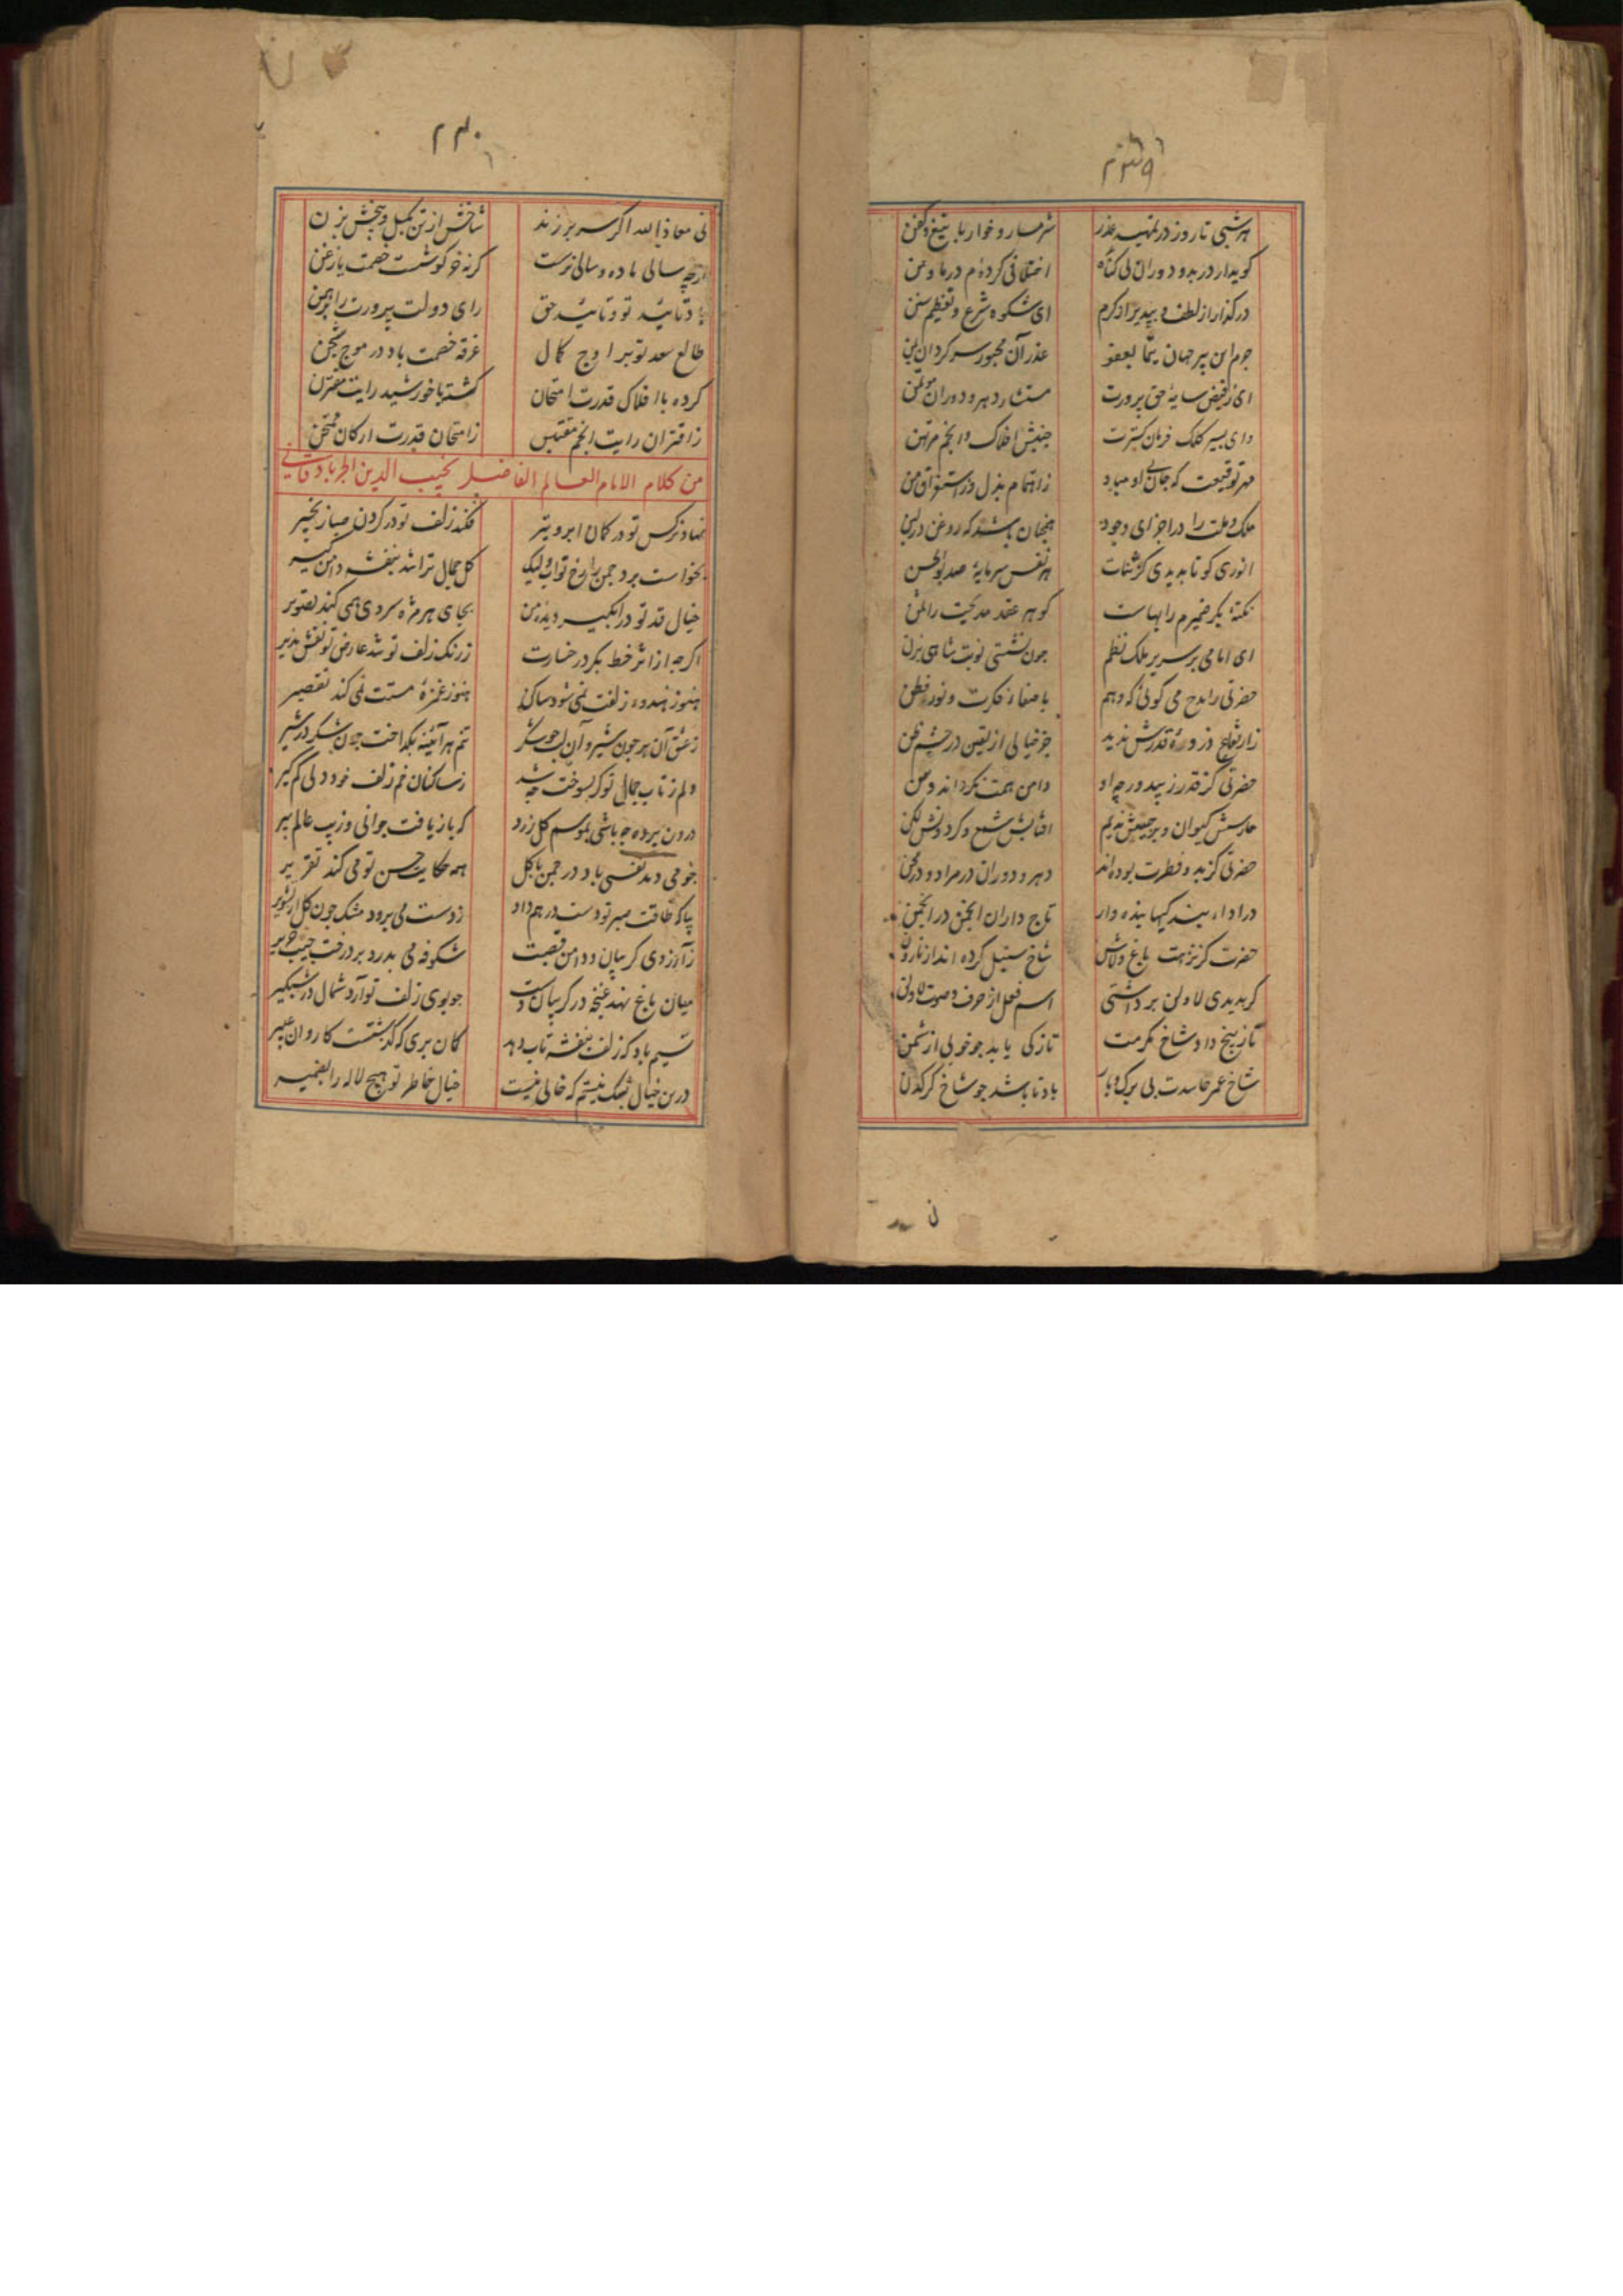 ۲۳۹
هر شبی تا روز در تمهید عذر شرمسار و خوار با تیغ و کفن
کویدار در بدو دوران بی کناه اختلافی کرده‌ام در ما و من
درکذار از لطف و بپذیر از کرم ای شکوه شرع و تعظیم سنن
جرم این پیر جهان پیما بعفو عذر آن مجبور سرکردان
ای ز فیض سایهٔ حق پرورت مستشار دهر و دوران مؤتمن
وای بسیر کلک فرمان کسترت جنبش افلاک و انجم مرتهن
مهر توقیعت که جان او مباد ز اهتمام بذل در
ملک و ملت را در اجزای وجود همچنان باشد که روغن در لبن
انوری کو تا بدیدی کز ثنات هر نفس سرمایهٔ صد بوالحسن
نکتهٔ بکر ضمیرم را بهاست کوهر عقد مدیحت را ثمن
ای امامی بر سریر ملک نظم چون نشستی نوبت شاهی بزن
حضرتی را مدح می کوئی که وهم با صفاء فکرت و نور فطن
ز ارتفاع ذروهٔ قدرش ندید جز خیالی از یقین در چشم ظن
حضرتی کز قدر زیبد ورچه او دامن همت نکرداند و من
حارسش کیوان و برجیسش ندیم افتابش شمع و کردونش لکن
حضرتی کز بدو فطرت بوده‌اند دهر و دوران در مراد و در محن
در اداء بندکیها بنده وار تاج داران انجمن در انجمن
حضرت کز نزهت باغ ولاش شاخ سنبل کرده اند از نارون
کر بدیدی لا ولن برداشتی اسم فعل از حرف و صوت لا ولن
تا ز بیخ داد شاخ مکرمت تازکی یابد چو خوبی از شمن
شاخ عمر حاسدت بی برک و بار باد تا باشد چو شاخ کرکدن
۲۴۰
نی معاذالله اکر سر برزند شاخش از تن بکسل و بیخش بزن
کرچه سالی ماده و سالی نرست کرنه خرکوشست خصمت یا زغن
باد تائید تو و تائید حق رای دولت پرورت را
طالع سعد تو بر اوج کمال غرقه خصمت باد در موج محن
کرده با افلاک قدرت امتحان کشته با خورشید رایت مقترن
ز اقتران رایت انجم مقتبس ز امتحان قدرت ارکان ممتحن
من کلام الامام العالم الفاضل نجیب الدین الجربادقانی
نهاد نرکس تو در کمان ابرو تیر فکند زلف تو در کردن صبا زنجیر
بخواست برد چمن را رخ تو آب ولیک کل جمال ترا شد بنفشه دامن کیر
خیال قد تو در آبکیر دیدهٔ من بجای هر مژه سروی همی کند تصویر
اکرچه از اثر خط بکرد رخسارت ز رنک زلف تو شد عارض تو نقش پذیر
هنوز هندوء زلفت نمی شود ساکن هنوز غمزهٔ مستت نمی کند تقصیر
ز عشق آن بر چون شیر و آن لب چو شکر تنم هر آینه بکداخت چون شکر در شیر
دلم ز تاب جمال تو کر بسوخت چه شد ز ساکنان خم زلف خود دلی کم کیر
درون پرده چه باشی بموسم کل زرد که باز یافت جوانی و زیب عالم پیر
چو می دمد نفسی باد در چمن با کل همه حکایت حسن تو می کند تقریر
بیا که طاقت صبر تو دست در هم داد ز دست می برود مشک چون کل از تشویر
ز آرزوی کریبان و دامن قصبت شکوفه می بدرد بر درخت جیب حریر
میان باغ نهد غنچه در کریبان دست چو بوی زلف تو آرد شمال در شبکیر
نسیم باد که زلف بنفشه تاب دهد کمان بری که کذشتست کاروان عبیر
درین خیال بشک نیستم که خالی نیست خیال خاطر تو هیچ لاله را بضمیر